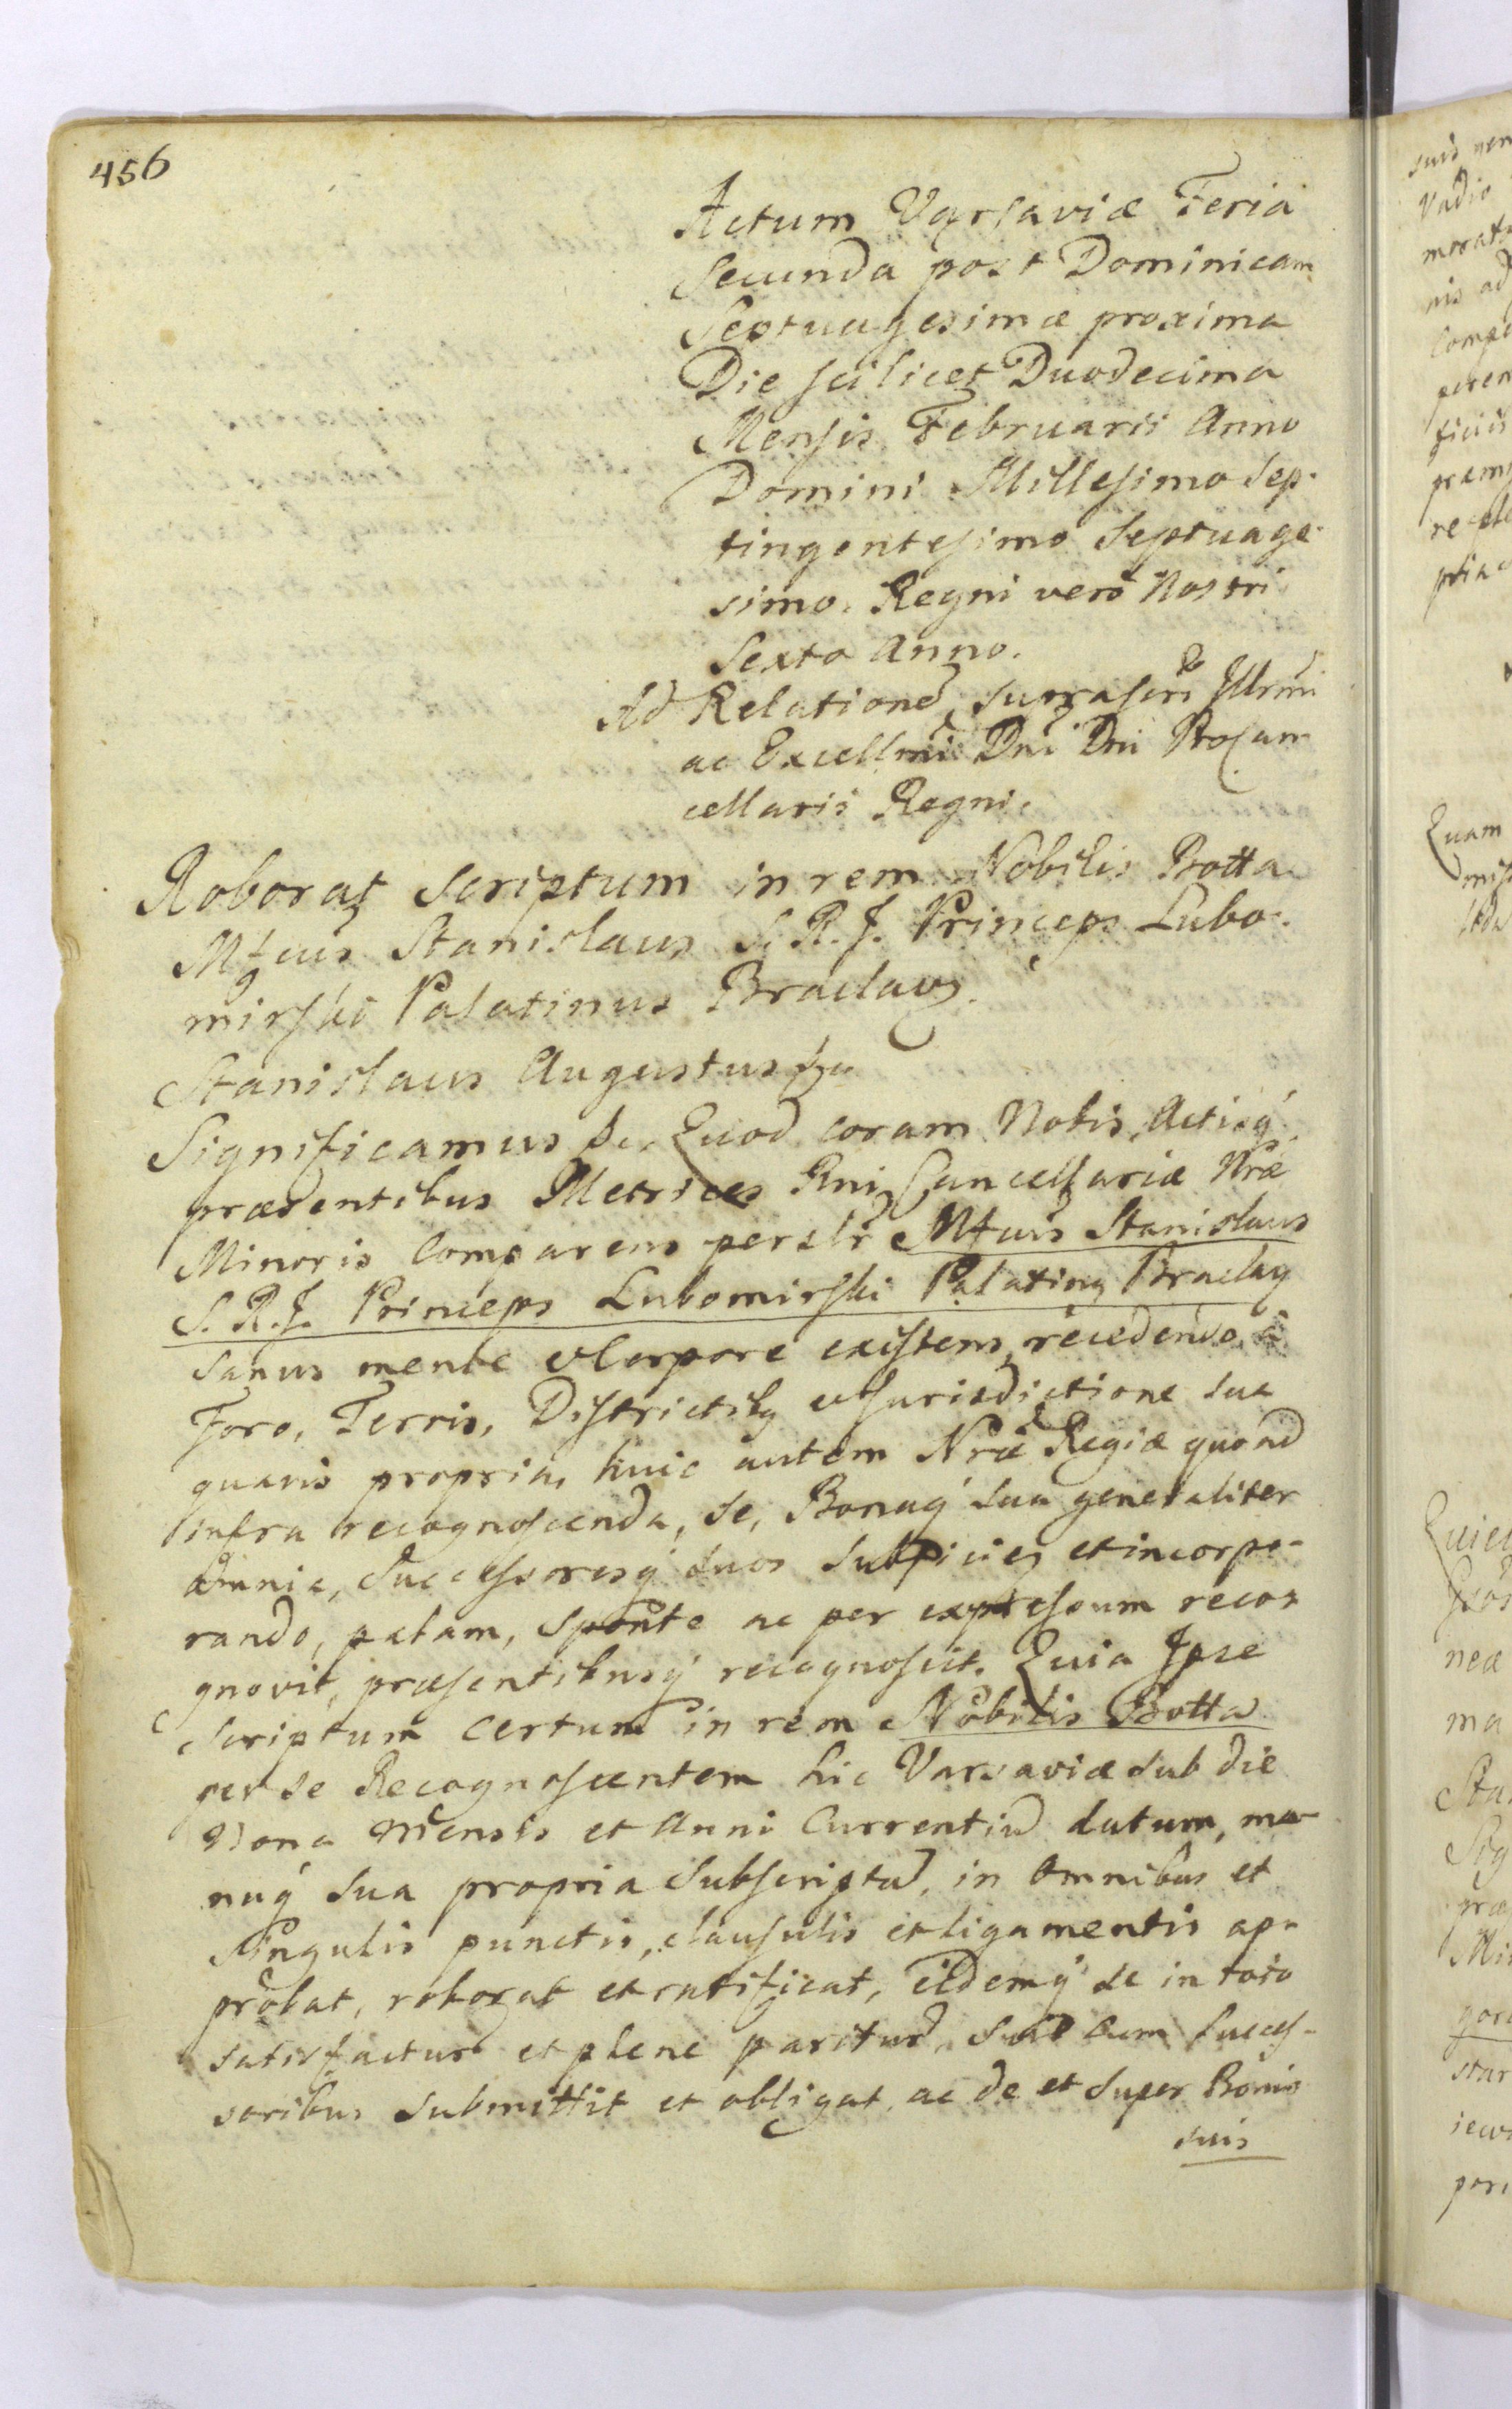 456
Actum Varsaviæ Feria
Secunda post Dominicam
Septuagesimæ proxima
Die scilicet Duodecima
Mensis Februarii Anno
Domini Millesimo Sep-
tingentesimo Septuage-
simo. Regni vero Nostri
Sexto Anno.
Ad Relatione suprascri Illrmi
ac Excellmi Dni Dni Procan
cellarii Regni.
Roborat Scriptum in rem Nobilis Botta
Mfcus Stanislaus S. R. J. Princeps Lubo-
mirski Palatinus Braclav.
Stanislaus Augustus &c
Significamus &c. Quod coram Nobis, Actisq́
præsentibus Metrices Rni Cancellariæ Nræ
Minoris Comparens perslr Mfcus Stanislaus
S. R. J. Princeps Lubomirski Palatinq Braclav
sanus mente et Corpore existens, recedendo á
Foro, Terris, Districtibq et Jurisdictione sua
quavis propria, huic autem Nræ Regiæ quoad
infra recognoscenda, se, Bonaq́ sua generaliter
omnia, Successoresq́ suos subjicies et incorpo-
rando, palam, sponte ac per expressum recog
gnovit, præsentibusq́ recognoscit. Quia Ipse
Scriptum certum in rem Nobilis Botta
per se Recognoscentem hic Varsaviæ sub die
Nona Mensis et Anni Currentiu datum, ma-
nuq́ sua propria Subscriptu, in Omnibus et
Singulis punctis, clausulis et ligamentis ap-
probat, roborat et ratificat, eidemq́ se in toto
satisfactur et plene paritur, suis cum succes-
soribus submittit et obligat, ac de et super Bonis
suis
suis
Vadio
nis ad
Quam
neæ
ma